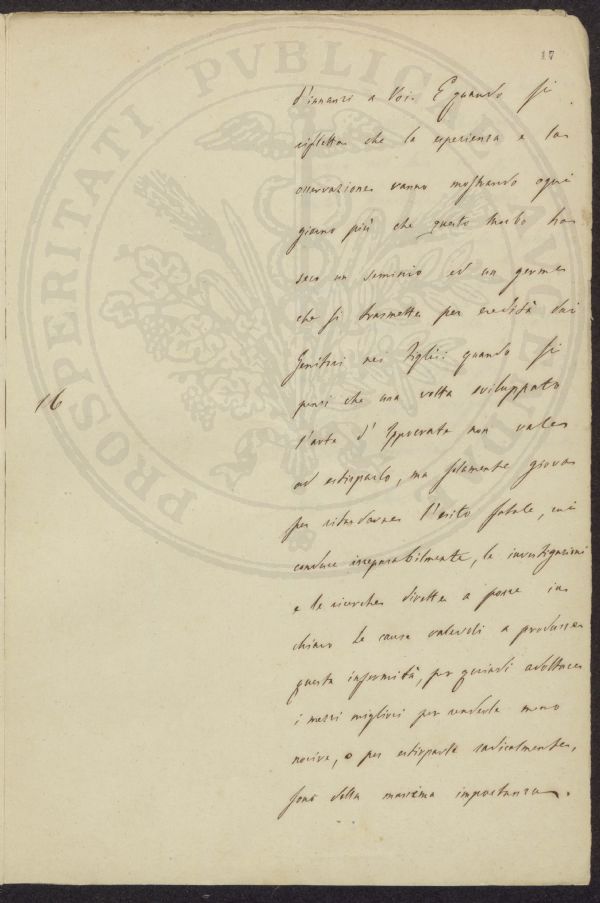 17
d'innanzi a Voi. E quando si
rifletta che la esperienza e la
osservazione vanno mostrando ogni
giorno più che questo morbo ha
seco un seminio ed un germe
che si trasmette per eredità dai
Genitori nei Figli: quando si
pensi che una volta sviluppato
l'arte d'Ippocrate non vale
ad estirparlo, ma solamente giova
per ritardarne l'esito fatale, cui
conduce irreparabilmente, le investigazioni
e le ricerche dirette a porre in
chiaro le cause valevoli a produrre
questa infermità, per quindi adottare
i mezzi migliori per renderla meno
nociva, o per estirparla radicalmente,
sono della massima importanza.
16
PROSPERITATI PVBLICAE AVGENDAE